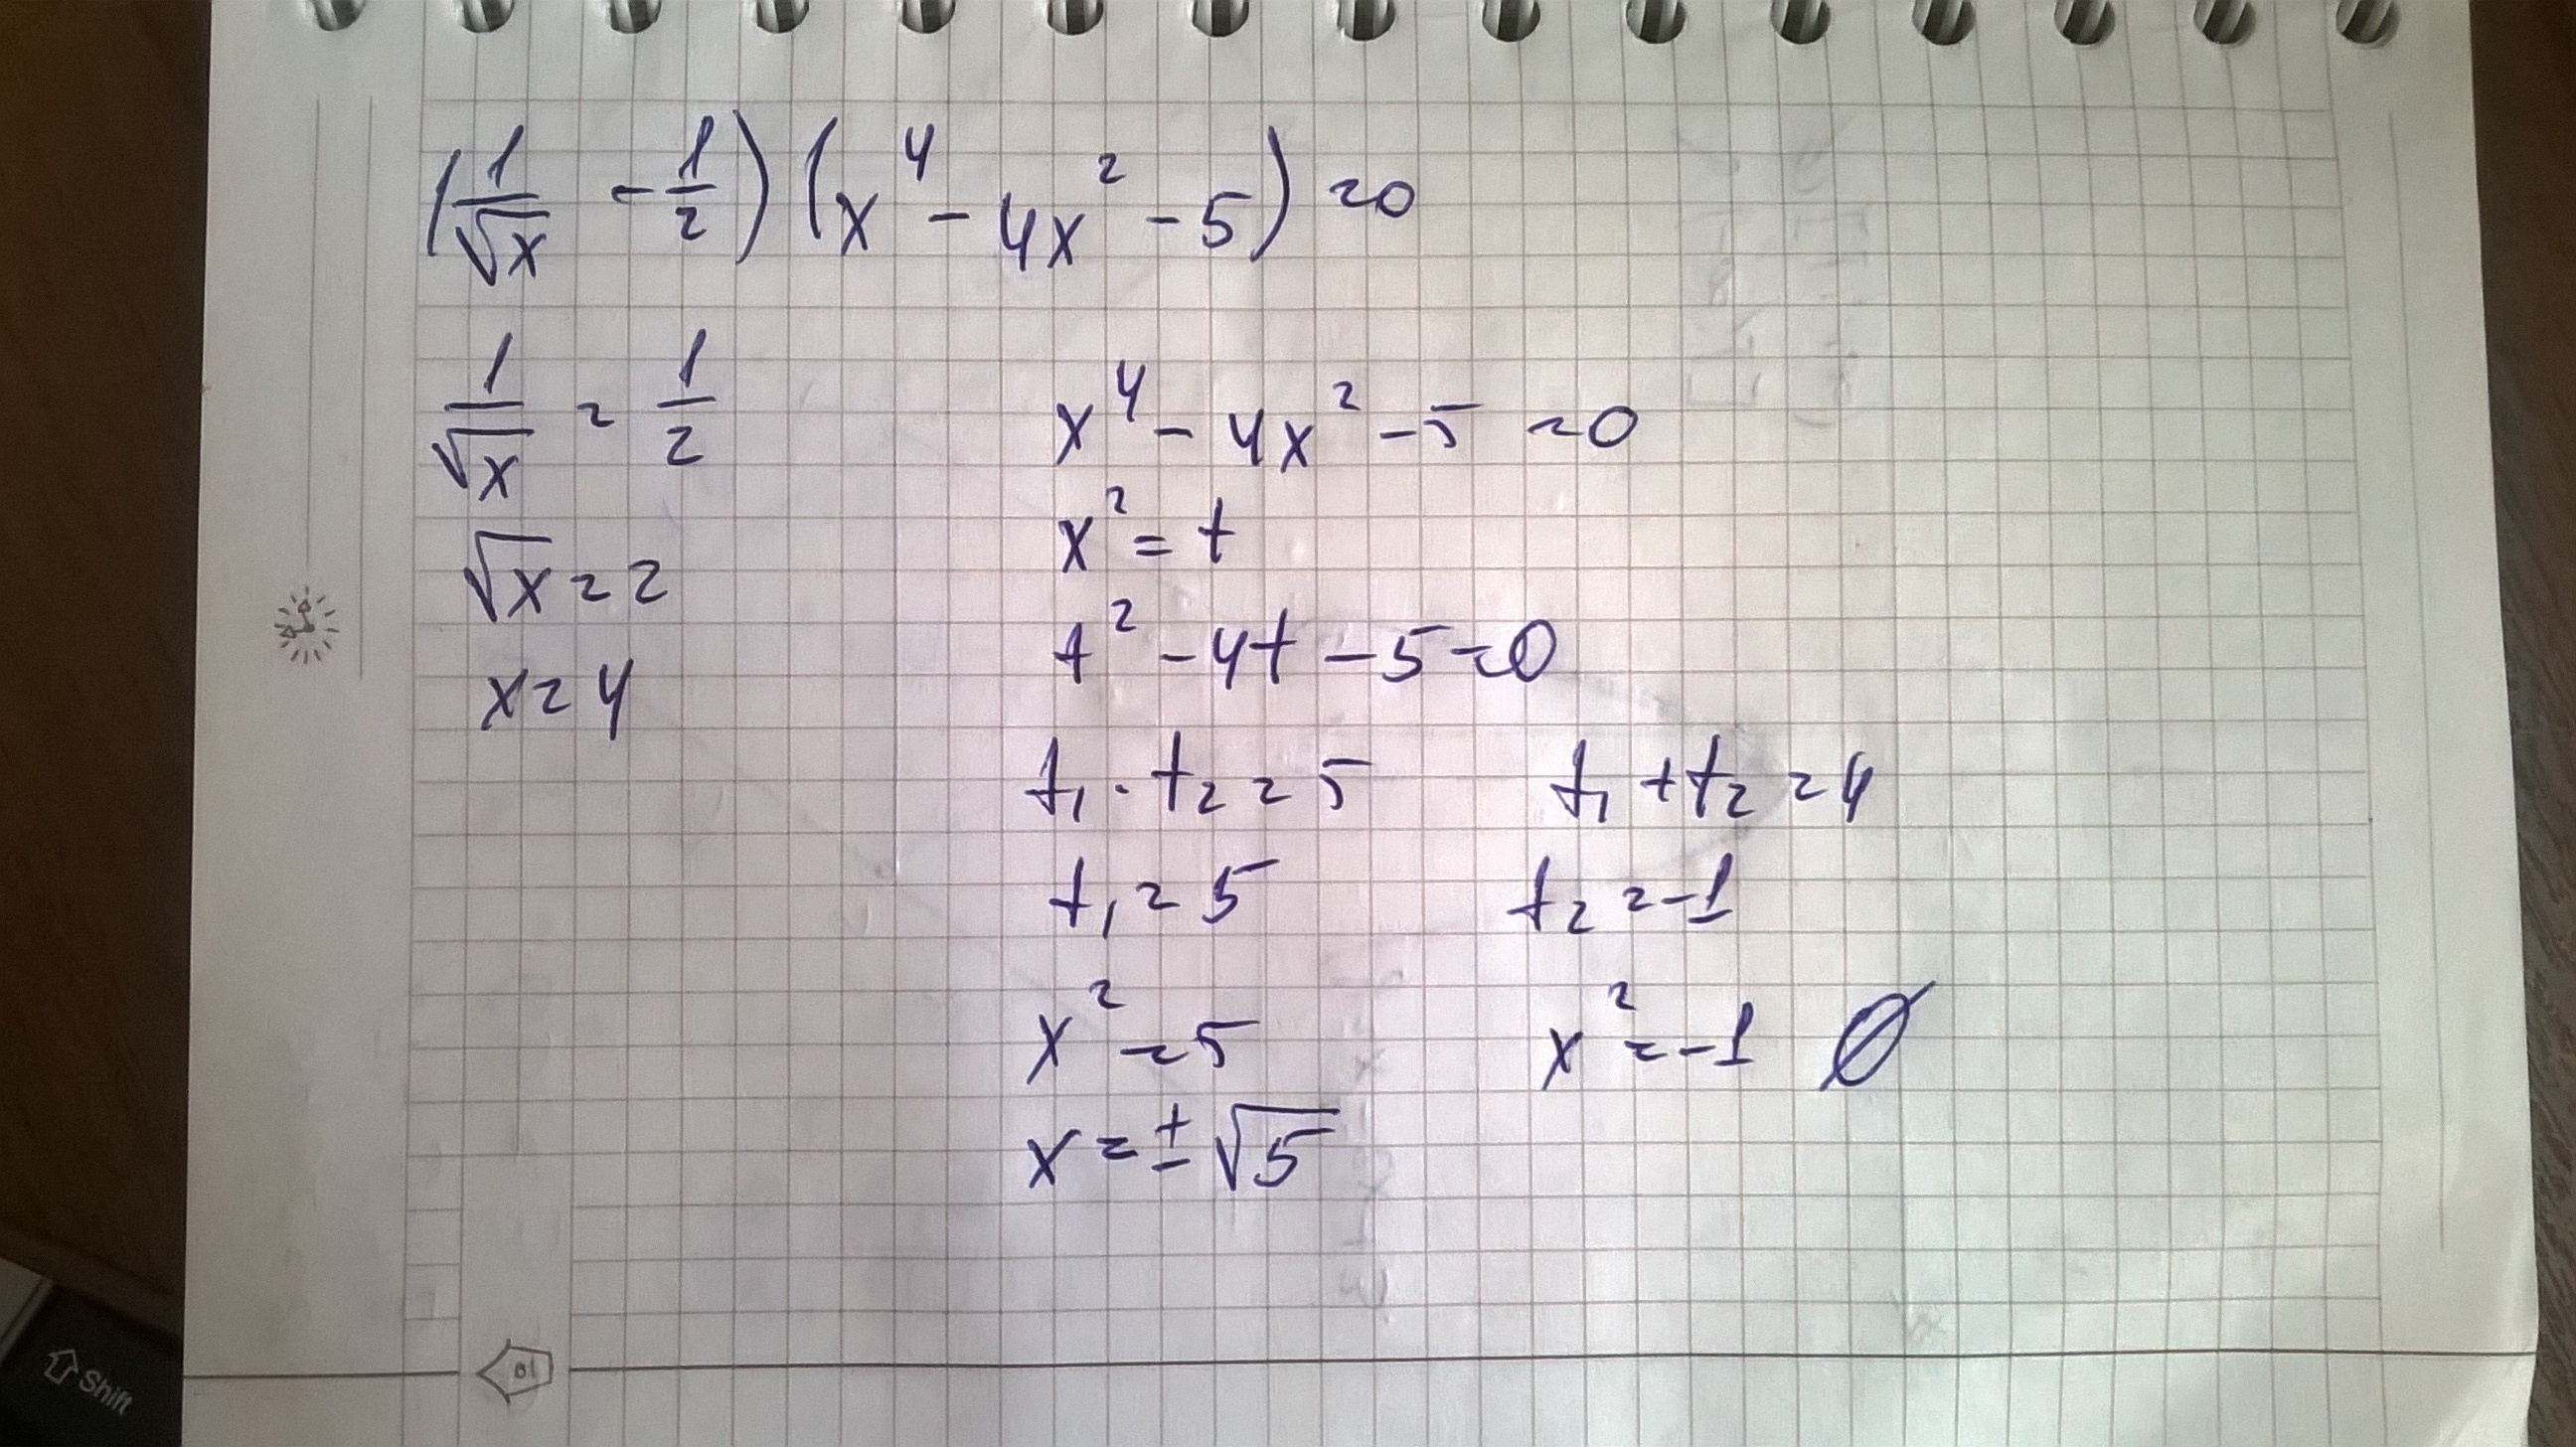 (1/√x - 1/2)(x⁴ - 4x² - 5) = 0
1/√x = 1/2
x⁴ - 4x² - 5 = 0
x² = t
√x = 2
t² - 4t - 5 = 0
x = 4
t₁ · t₂ = 5
t₁ + t₂ = 4
t₁ = 5
t₂ = -1
x² = 5
x² = -1 ∅
x = ± √5
01
Shift